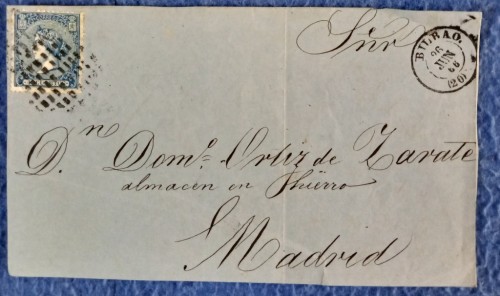 Súr
BILBAO.
26
JUN
66
(20)
Dn. Domo. Ortiz de Zarate
almacén en hierro
Madrid